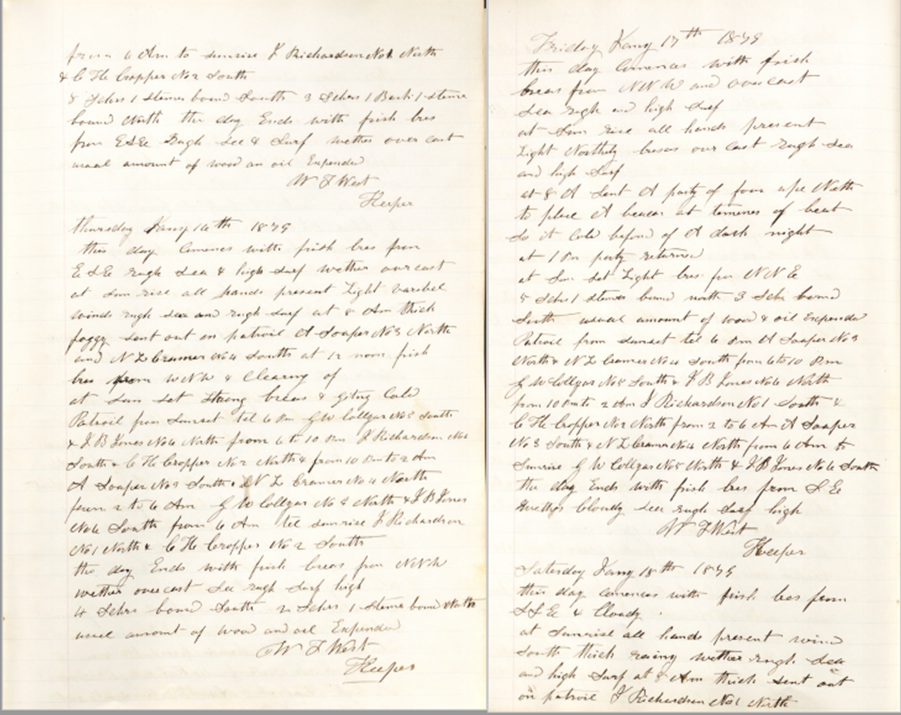 from 6 Am to sunrise J Richardson No1 North
& C H Cropper No 2 South
8 Schrs 1 stemer bound South 3 Schrs 1 Bark 1 steme
bound North the day Ends with frish bres
from ESE Rugh See & Surf wether over cast
usual amount of wood an oil Expended
W F West
Keeper
Thursday Jany 16th 1879
this day Comences with frish bres from
E S E rugh Sea & high Surf wether overcast
at Sun rise all hands present Light
winds rugh Sea and rugh Surf at 8 Am thick
foggy sent out on patroil A Soaper No 3 North
and N L Cramer No 4 South at 12 noon frish
bres from WNW & Clearing of
at Sun Set Strong breas & giting Cold
Patroil from Sunset til 6 Pm G W Collgas No 5 South
& J B Jones No 6 North from 6 to 10 Pm J Richardson No1
South & C H Cropper No 2 North & from 10 Pm to 2 Am
A Soaper No 3 South & N L Cramer No 4 North
from 2 to 6 Am G W Collgas No 5 North & J B Jones
No 6 South from 6 Am til sunrise J Richardson
No 1 North & C H Cropper No 2 South
the day Ends with frish breas from NNW
wether overcast See rugh Surf high
4 Schrs bound South 2 Schrs 1 stemer bound North
usual amount of wood and oil Expended
W F West
Keeper
Friday Jany 17th 1879
this day Comences with frish
breas from NNW and overcast
Sea rugh and high Surf
at Sun rise all hands present
Light Northily breas over Cast rugh Sea
and high Surf
at 8 A Sent A party of four up North
to place A beacon at of beat
So A Cold of A dark night
at 1 Pm party returned
at Sun Set Light bres from N N E
8 Schrs 1 stemer bound north 3 Schr bound
South usual amount of wood & oil Expended
Patroil from sunset til 6 Pm A Soaper No 3
North & N L Cramer No 4 South from 6 to 10 Pm
G W Collgas No 5 South & J B Jones No 6 North
from 10 Pm to 2 Am J Richardson No 1 South &
C H Cropper No 2 North from 2 to 6 Am A Soaper
No 3 South & N L Cramer No 4 North from 6 Am to
Sunrise G W Collgas No 5 North & J B Jones No 6 South
the day Ends with frish bres from S E
wether Cloudy Sea rugh Surf high
W F West
Keeper
Saturday Jany 18th 1879
this day Comences with frish bres from
S S E & Cloudy
at Sunrise all hands present wind
South thick rainy wether rugh Sea
and high Surf at 8 Am thick Sent out
on patroil J Richardson No 1 North